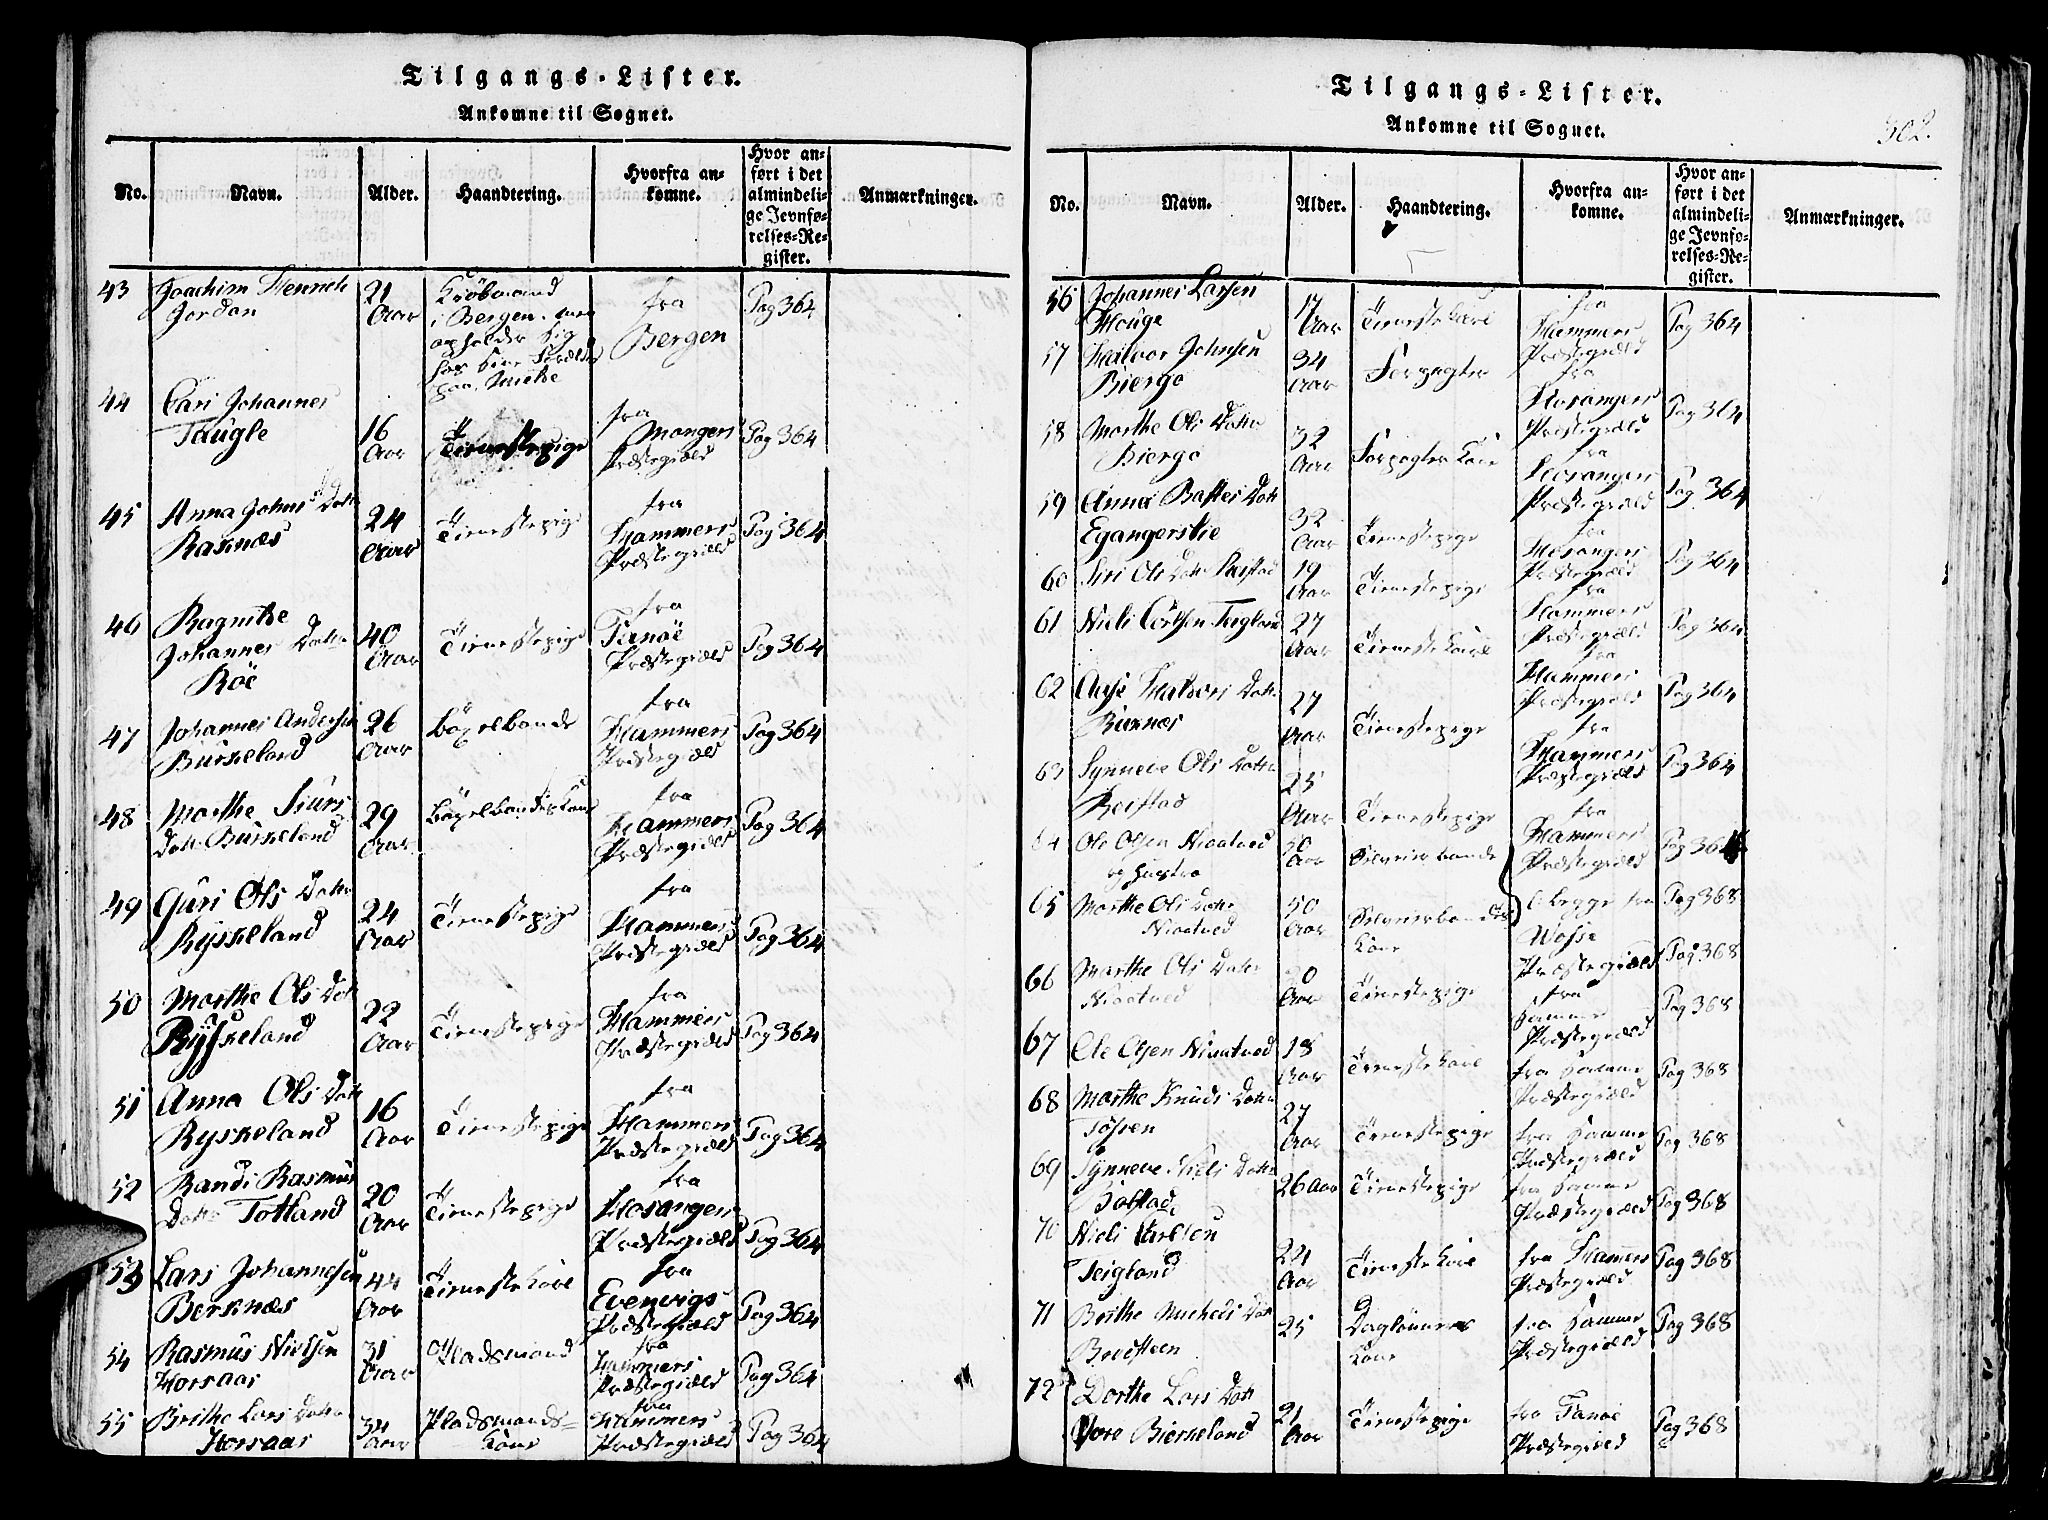 Tilgangs-Lister.
Ankomne til Sognet.
No. Navn. Alder. Haandtering. Hvorfra ankomne. Hvor anført i det almindelige Jevnførelses-Register. Anmærkninger.
43 Joachim Henrich Jordan 21 Aar i Bergen opholder sig hos sine fra Bergen Pag 364
44 Cari Johannes Taugle 16 Aar Tienestepige fra Mangers Præstegield Pag 364
45 Anna Johns Datt Raknæs 24 Aar Tienestepige fra Hammers Præstegield Pag 364
46 Ragnilde Johannes Dattr Röe 40 Aar Tienestepige fra Fanöe Præstegield Pag 364
47 Johannes Andersen Birkeland 26 Aar fra Hammers Præstegield Pag 364
48 Marthe Siurs Datt Birkeland 29 Aar fra Hammers Præstegield Pag 364
49 Guri Ols Dattr Ryskeland 24 Aar Tienestepige fra Hammers Præstegield Pag 364
50 Marthe Ols Datt Ryskeland 22 Aar Tienestepige fra Hammers Præstegield Pag 364
51 Anna Ols Datt Ryskeland 16 Aar Tienestepige fra Hammers Præstegield Pag 364
52 Randi Rasmus Dattr Totland 20 Aar Tienestepige fra Hosanger Præstegield Pag 364
53 Lars Johannesen Berknæs 44 Aar Tienestekarl fra Evenvigs Præstegield Pag 364
54 Rasmus Nielsen Horsaas 31 Aar Pladsmand fra Hammers Præstegield Pag 364
55 Brithe Lars Dattr Horsaas 34 Aar Pladsmands-Kone fra Hammers Præstegield Pag 364
Tilgangs-Lister.
Ankomne til Sognet.
302.
No. Navn. Alder. Haandtering. Hvorfra ankomne. Hvor anført i det almindelige Jevnførelses-Register. Anmærkninger.
56 Johannes Larsen Houge 17 Aar Tienestekarl fra Hammers Præstegield Pag 364
57 Halvor Johnsen Biergo 34 Aar Forpagter fra Hosangers Præstegield Pag 364
58 Marthe Ols Dattr Biergo 32 Aar Forpagter Kone fra Hosanger Præstegield Pag 364
59 Anna Datt 32 Aar Tienestepige fra Hosangers Præstegield Pag 364
60 Siri Ols Dattr 19 Aar Tienestepige fra Hammers Præstegield Pag 364
61 Niels Teigland 27 Aar Tienestekarl fra Hammers Præstegield Pag 364
62 Halvors Dattr 27 Aar Tienestepige fra Hammers Præstegield Pag 364
63 Synneve Ols Dattr 25 Aar Tienestepige fra Hammers Præstegield Pag 364
64 Ole Olsen og Hustro 50 Aar begge fra Wosse Præstegield Pag 368
65 Marthe Ols Dattr 50 Aar Kone Pag 368
66 Marthe Ols Dattr 20 Aar Tienestepige fra samme Præstegield Pag 368
67 Ole Olsen 18 Aar Tienestekarl fra samme Præstegield Pag 368
68 Marthe Knuds Dattr 27 Aar Tienestepige fra samme Præstegield Pag 368
69 Synneve Niels Dattr Bolstad 26 Aar Tienestepige fra samme Præstegield Pag 368
70 Niels Teigland Aar Tienestekarl fra Hammers Præstegield Pag 368
71 Brithe Michels Datt 25 Daglönners Kone fra samme Præstegield Pag 368
72 Dorthe Lars Datt Bierkeland 21 Aar Tienestepige fra Fanöe Præstegield Pag 368